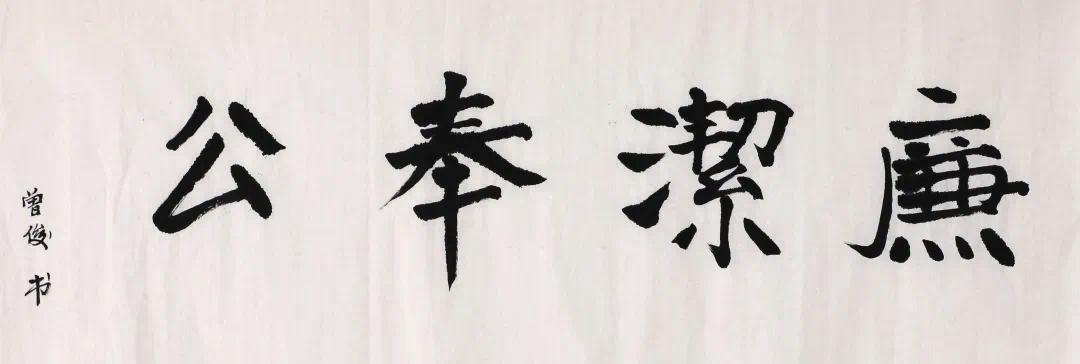 廉潔奉公
曾俊书